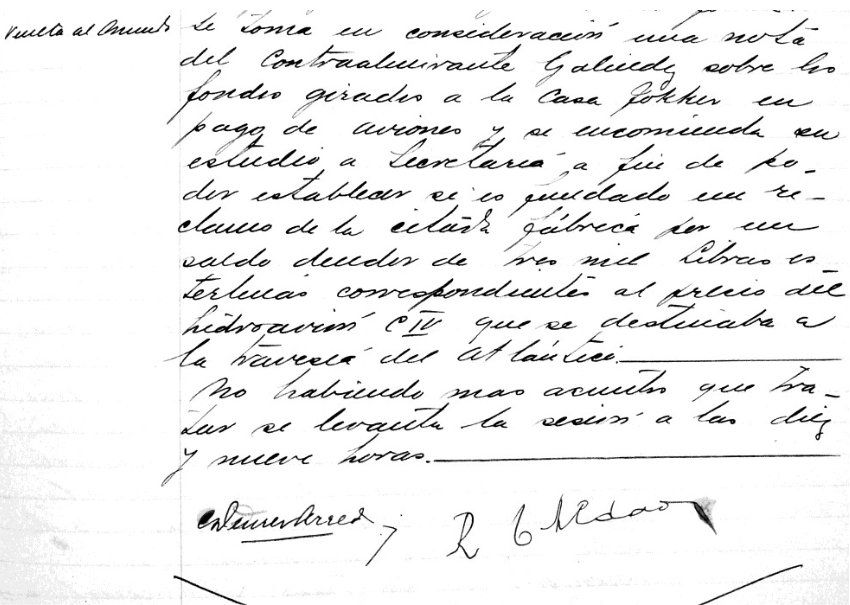 Vuelta al Mundo
Se toma en consideración una nota
del Contraalmirante Galindez sobre los
fondos girados a la Casa Fokker en
pago de aviones y se encomienda su
estudio a Secretaría a fin de po-
der establecer si es fundado un re-
clamo de la citada fábrica por un
saldo deudor de tres mil libras es
terlinas correspondientes al precio del
hidroavión C IV que se destinaba a
la travesía del Atlántico.
No habiendo mas asuntos que tra-
tar se levanta la sesión a las diez
y nueve horas.
R